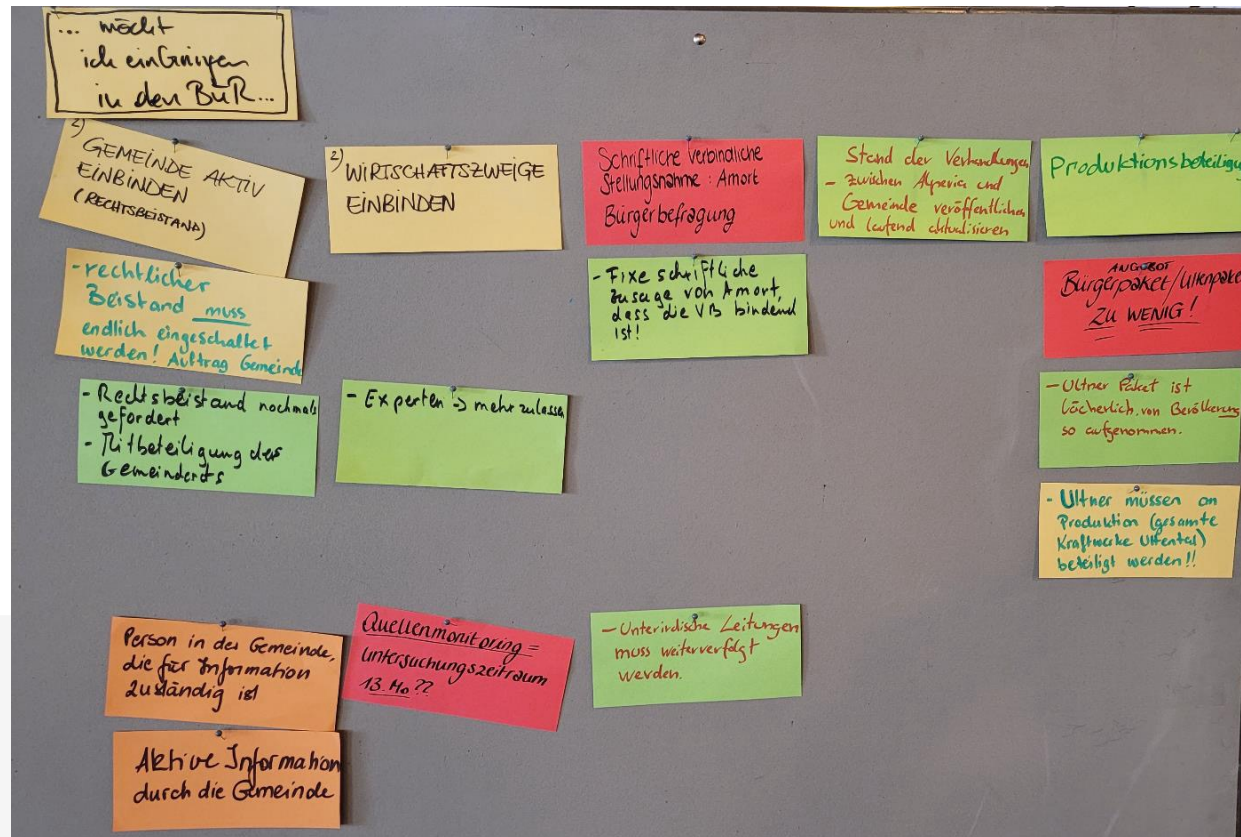 ... möcht
ich einbringen
in den BüR...
2)
GEMEINDE AKTIV
EINBINDEN
(RECHTSBEISTAND)
- rechtlicher
Beistand muss
endlich eingeschaltet
werden! Auftrag Gemeinde
- Rechtsbeistand nochmals
gefordert
- Mitbeteiligung des
Gemeinderats
2) WIRTSCHAFTSZWEIGE
EINBINDEN
- Experten → mehr zulassen
Schriftliche Verbindliche
Stellungsnahme : Amort
Bürgerbefragung
- Fixe schriftliche
Zusage von Amort,
dass die VB bindend
ist!
Stand der Verhandlungen
- zwischen Alperia und
Gemeinde veröffentlichen
und laufend aktualisieren
Produktionsbeteiligu
ANGEBOT
Bürgerpaket/Ultenpake
ZU WENIG!
- Ultner Paket ist
lächerlich, von Bevölkerung
so aufgenommen.
- Ultner müssen an
Produktion (gesamte
Kraftwerke Ultental)
beteiligt werden!!
Person in der Gemeinde,
die für Information
zuständig ist
Aktive Information
durch die Gemeinde
Quellenmonitoring =
untersuchungszeitraum
13. Mo ??
- Unterirdische Leitungen
muss weiterverfolgt
werden.